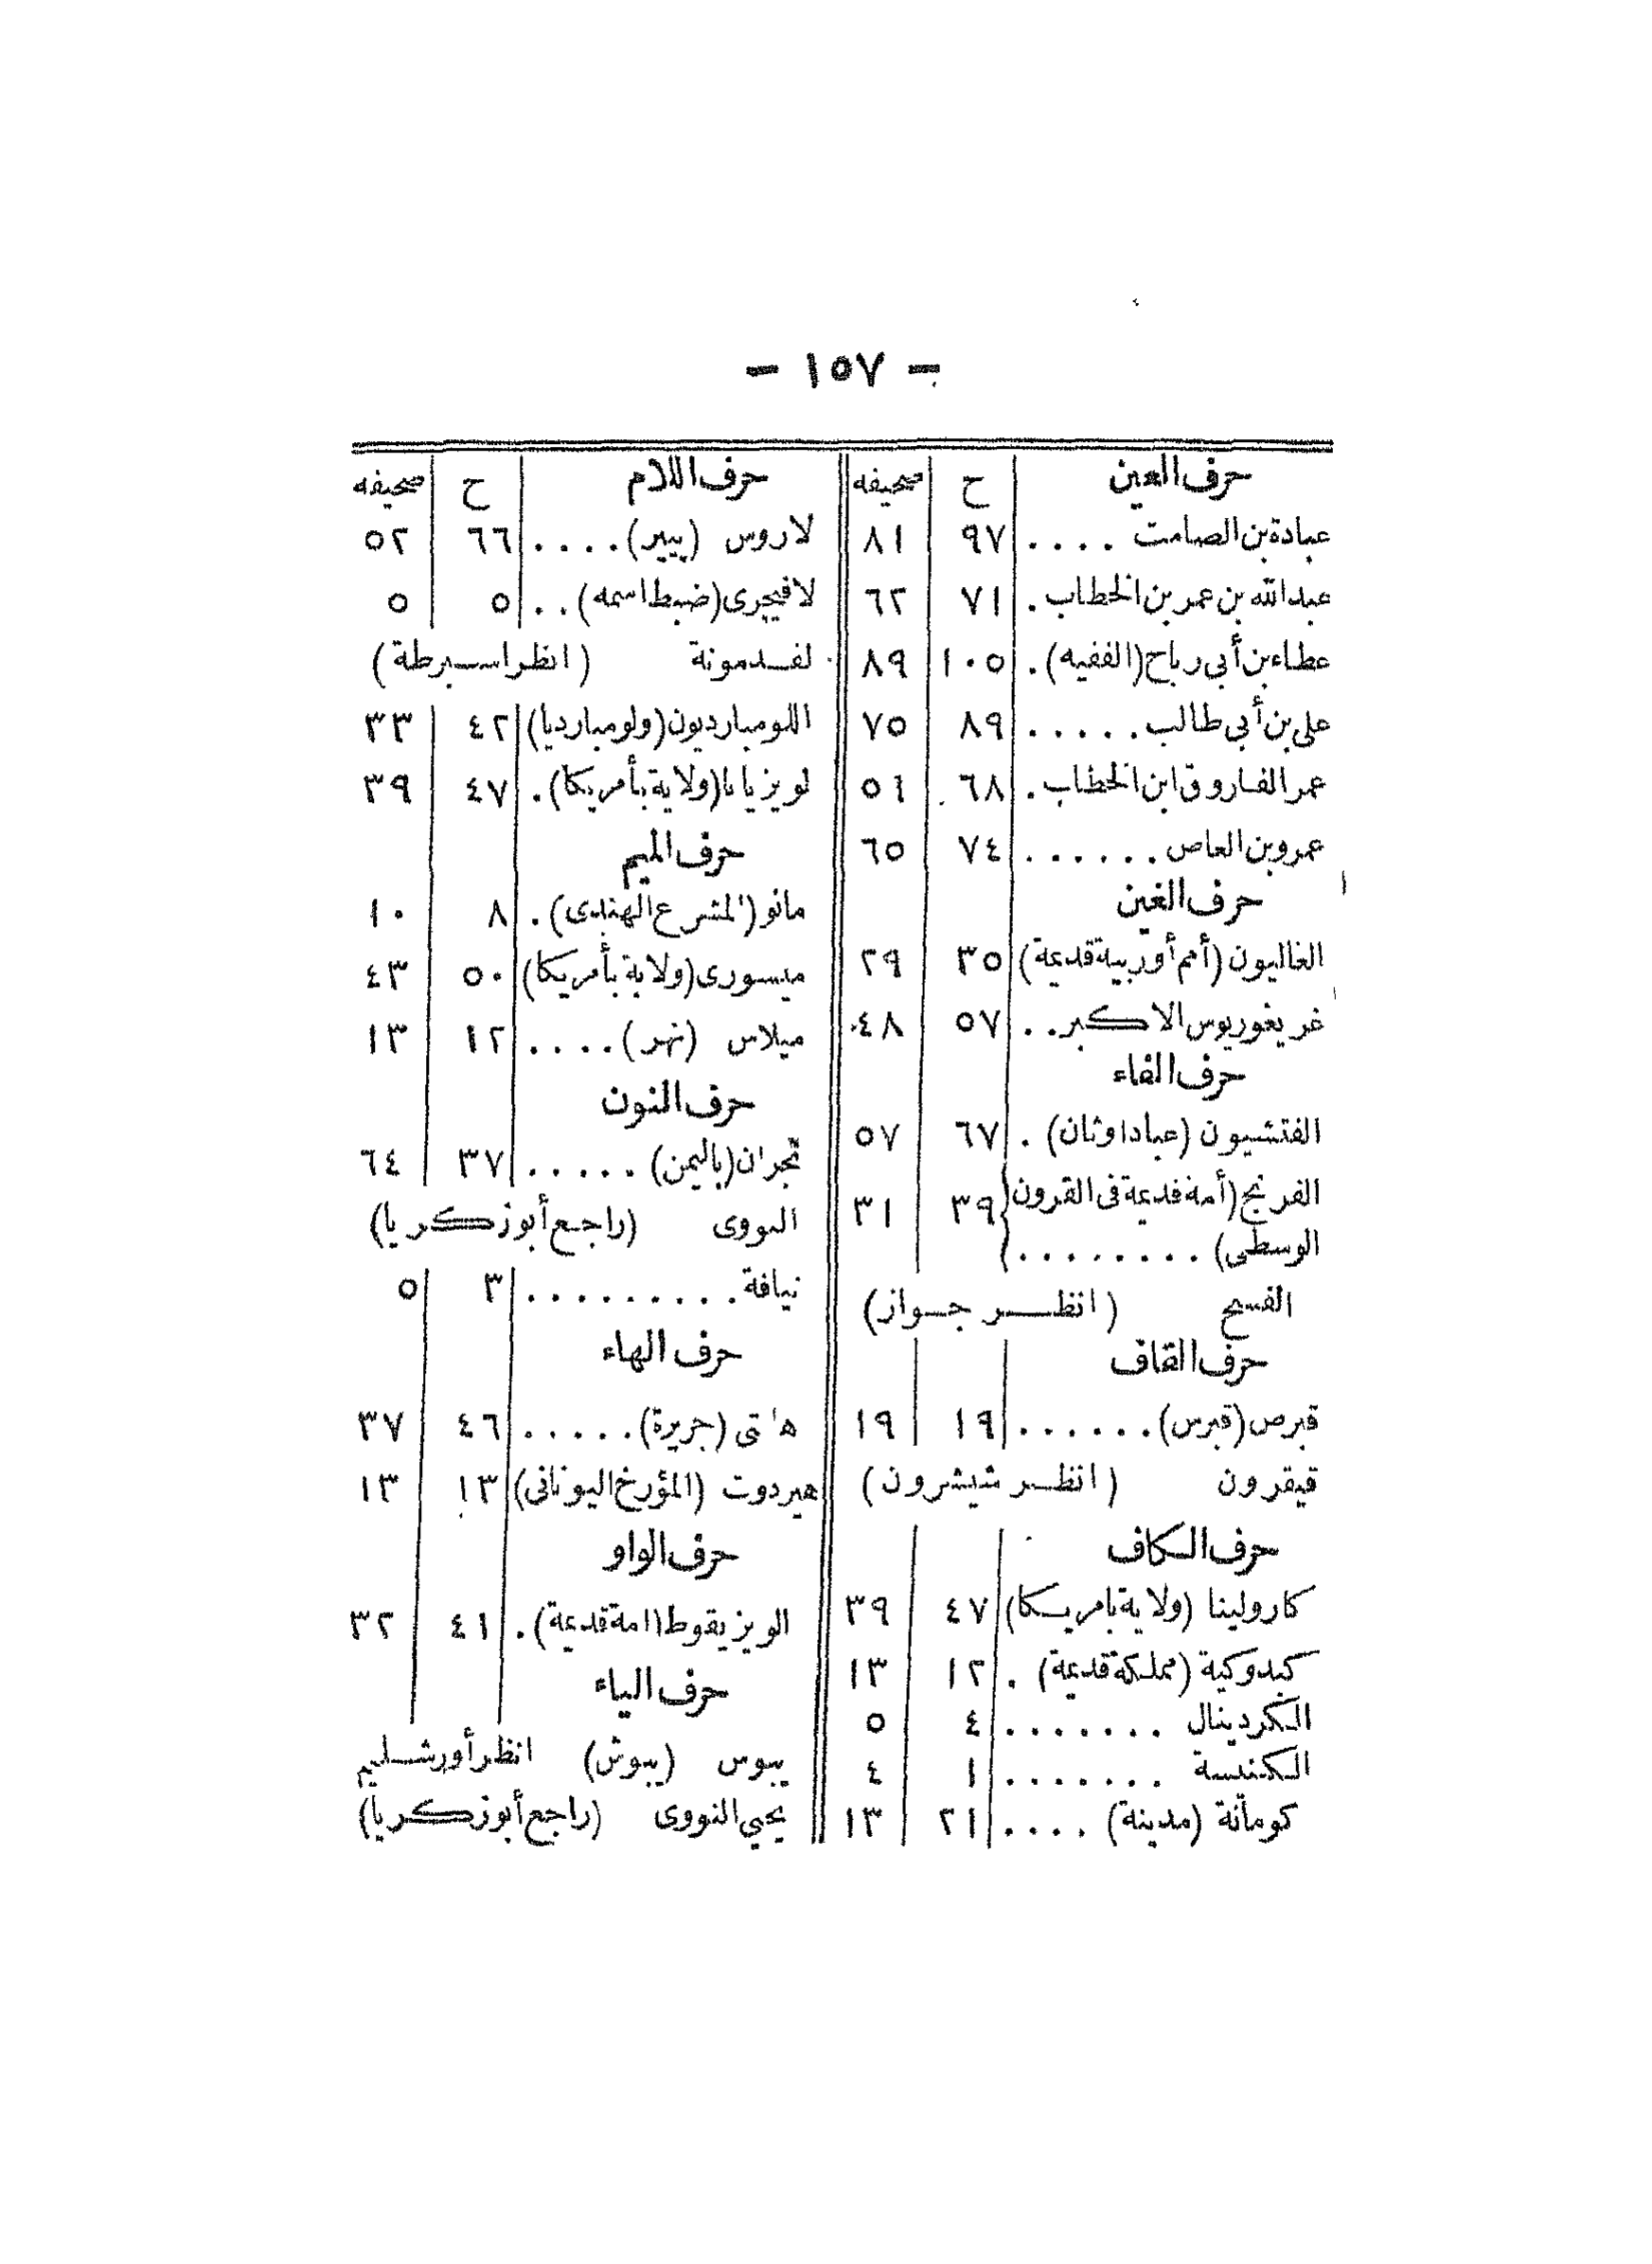 - ١٥٧ -
حرف العين ح صحيفه
عبادة بن الصامت .... ٩٧ ٨١
عبد الله بن عمر بن الخطاب . ٧١ ٦٢
عطاء بن أبي رباح (الفقيه) . ١٠٥ ٨٩
على بن أبي طالب ..... ٨٩ ٧٥
عمر الفاروق ابن الخطاب . ٦٨
عمرو بن العاص ...... ٧٤ ٦٥
حرف الغين
الغاليون (أمم أوربية قديمة) ٣٥ ٢٩
غريغوريوس الاكبر .. ٥٧ ٤٨
حرف الفاء
الفتشيون (عباد اوثان) . ٦٧ ٥٧
الفرنج (أمة قديمة فى القرون
الوسطى) ........ ٣٩ ٣١
الفسح (انظر جواز)
حرف القاف
قبرص (قبرس) ...... ١٩ ١٩
قيقرون (انظر شيشرون)
حرف الكاف
كارولينا (ولاية بامريكا) ٤٧ ٣٩
كبدوكية (مملكة قديمة) . ١٢ ١٣
الكردينال ....... ٤ ٥
الكنيسة ....... ١ ٤
كومانة (مدينة) .... ٢١ ١٣
حرف اللام ح صحيفه
لاروس (پيير) .... ٦٦ ٥٢
لافيچرى (ضبط اسمه) .. ٥ ٥
لقدمونة (انظر اسبرطة)
اللومبارديون (ولومبارديا) ٤٢ ٣٣
لويزيانا (ولاية بأمريكا) . ٤٧ ٣٩
حرف الميم
مانو (المشرع الهندى) . ٨ ١٠
ميسورى (ولاية بأمريكا) ٥٠ ٤٣
ميلاس (نهر) .... ١٢ ١٣
حرف النون
نجران (باليمن) ..... ٣٧ ٦٤
النووى (راجع أبو زكريا)
نيافة ......... ٣ ٥
حرف الهاء
هايتى (جزيرة) ..... ٤٦ ٣٧
هيردوت (المؤرخ اليونانى) ١٣ ١٣
حرف الواو
الويزيقوط (امة قديمة) . ٤١ ٣٢
حرف الياء
يبوس (يبوش) انظر أورشليم
يحيي النووى (راجع أبو زكريا)